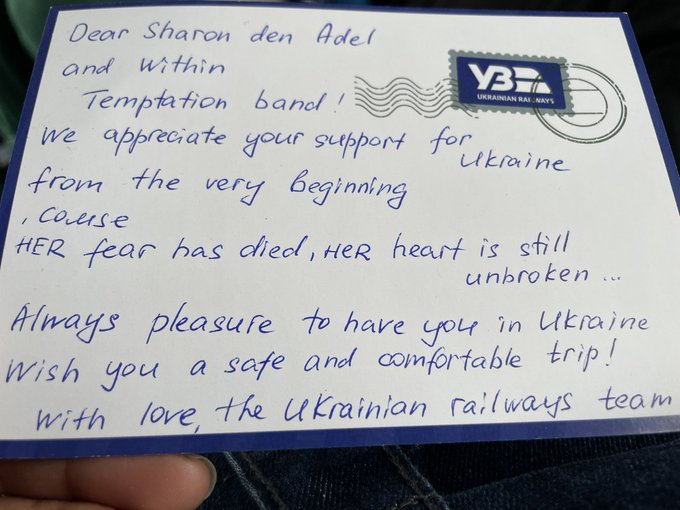 Dear Sharon den Adel
and Within
Temptation band!
УЗ
UKRAINIAN RAILWAYS
We appreciate your support for
Ukraine
from the very beginning
, cause
HER fear has died, HER heart is still
unbroken ...
Always pleasure to have you in Ukraine
Wish you a safe and comfortable trip!
With love, the Ukrainian railways team